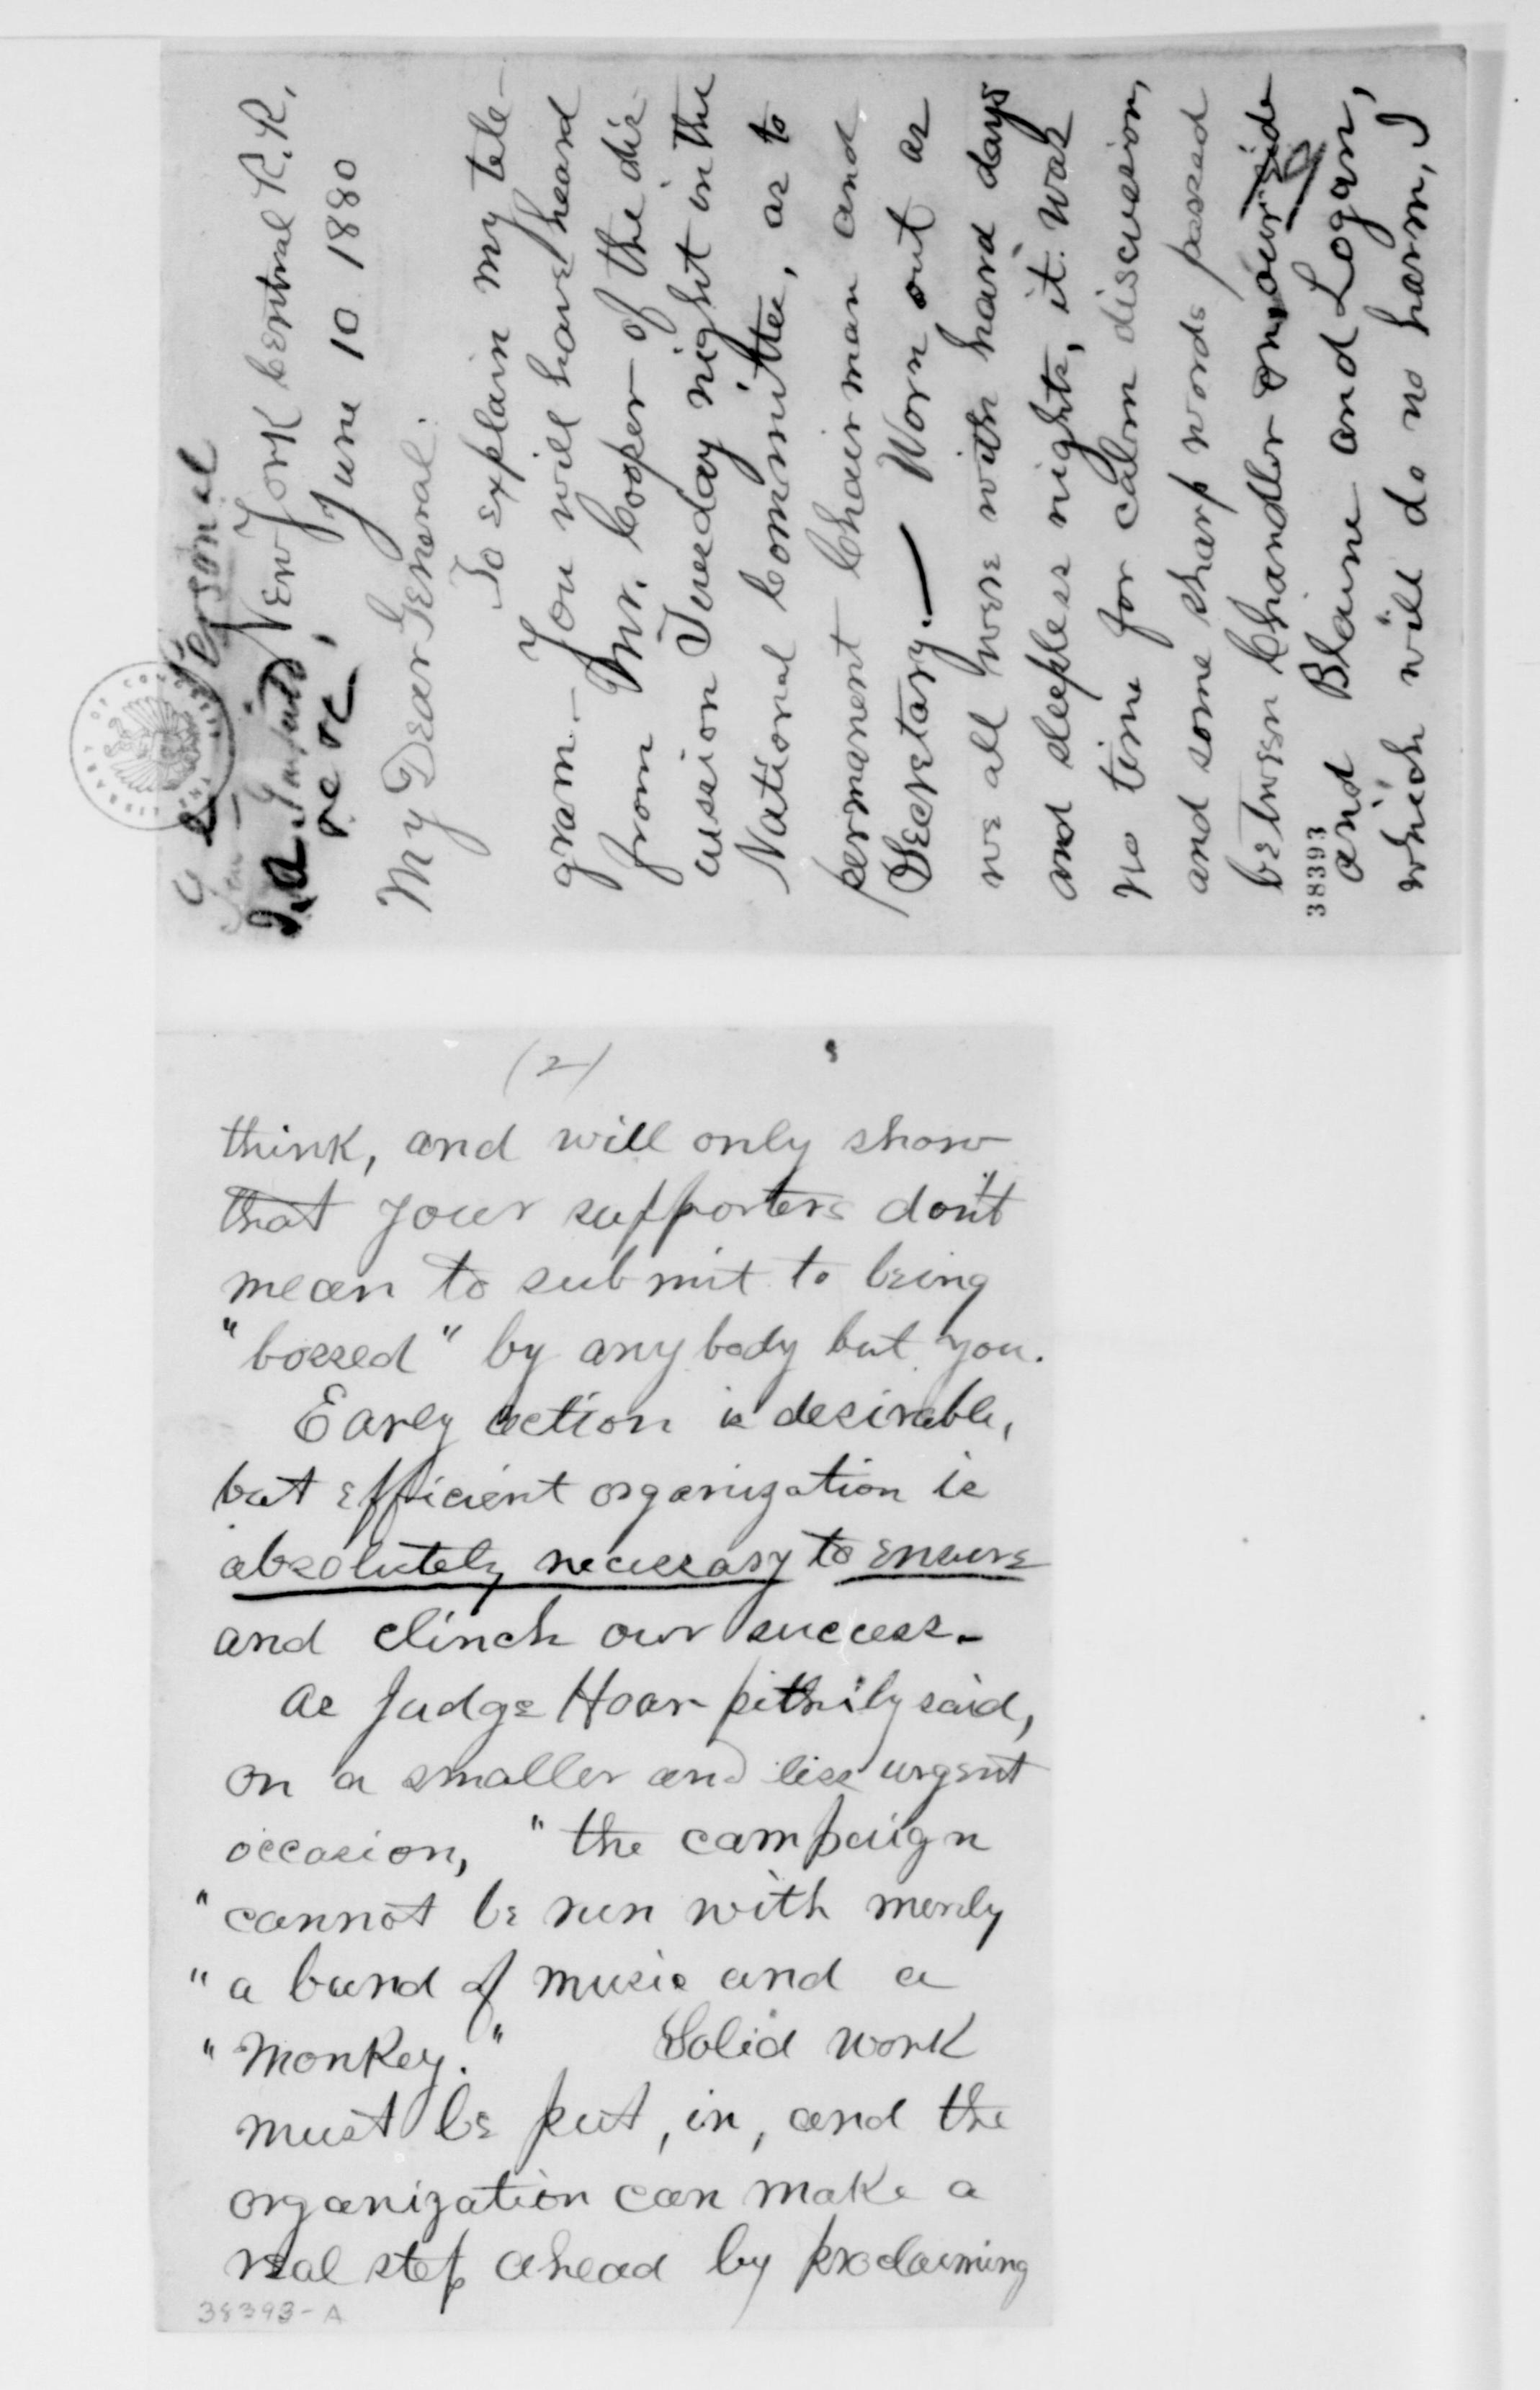 Personal
New York Central R.R.
June 10 1880
My Dear General:
To explain my tele-
gram — You will have heard
from Mr. Cooper of the dis-
cussion Tuesday night in the
National Committee, as to
permanent Chairman and
Secretary. — Worn out as
we all were with hard days
and sleepless nights, it was
no time for calm discussion,
and some sharp words passed
between Chandler on our side
and Blaine and Logan,
which will do no harm, I
38393
(2)
think, and will only show
that your supporters don't
mean to submit to being
"bossed" by anybody but you.
Early action is desirable,
but efficient organization is
absolutely necessary to ensure
and clinch our success.
As Judge Hoar pithily said,
on a smaller and less urgent
occasion, "the campaign
"cannot be run with merely
"a band of music and a
"monkey." Solid work
must be put, in, and the
organization can make a
real step ahead by proclaiming
38393-A